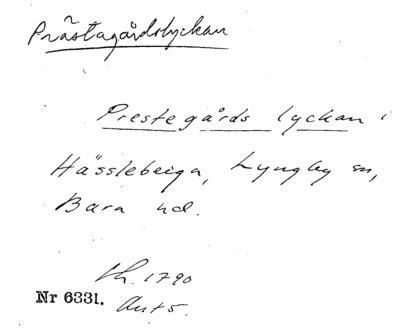 Prästagårdslyckan
Prestegårds lyckan i
Hässlebeiga, Lyngby sn,
Bara hd.
Lh. 1790
Nr 6331. Ant 5.